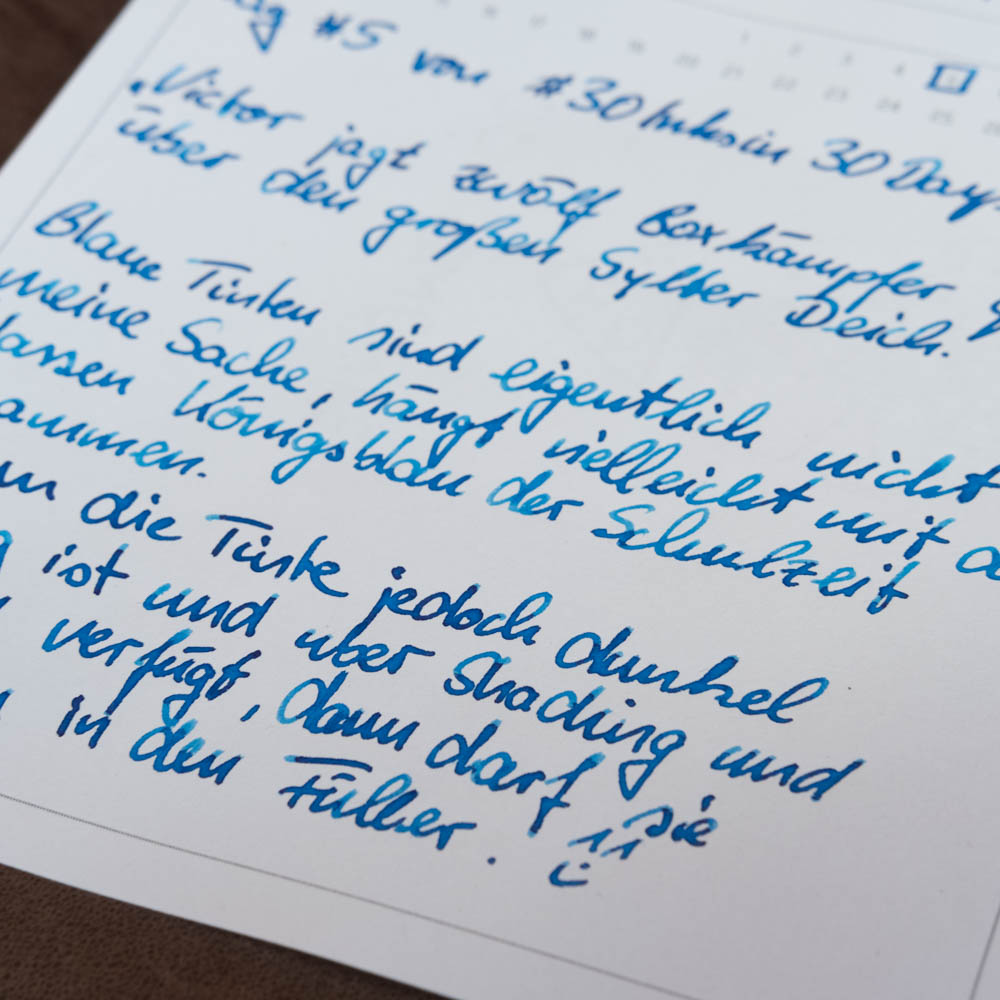 #5 von #30Inksin 30 Days
„Victor jagt zwölf Boxkämpfer
über den großen Sylter Deich.
Blaue Tinten sind eigentlich nicht
meine Sache, hängt vielleicht mit
Königsblau der Schulzeit
ammen.
die Tinte jedoch dunkel
ist und uber Shading und
verfügt, dann darf sie
in den Füller.